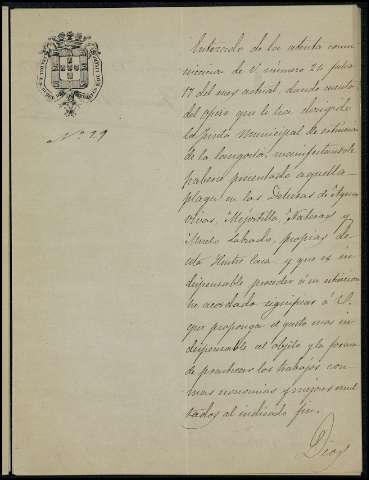 Nº 29
Enterado de la atenta comu
nicacion de V. número 24 fecha
17 del mes actual, dando cuenta
del oficio que le ha dirigido
la Junta Municipal de estincion
de la langosta, manifestandole
haberse presentado aquella
plaga en las Dehesas de Agua
vivas, Mejostilla, Nateras y
Mueto Labrado, propias de
esta Ilustre Casa y que es in
dispensable proceder á su estincion
he acordado significar á V.
que proponga el gasto mas in
dispensable al objeto y la forma
de practicar los trabajos con
mas economias y mejores resul
tados al indicado fin.
Dios